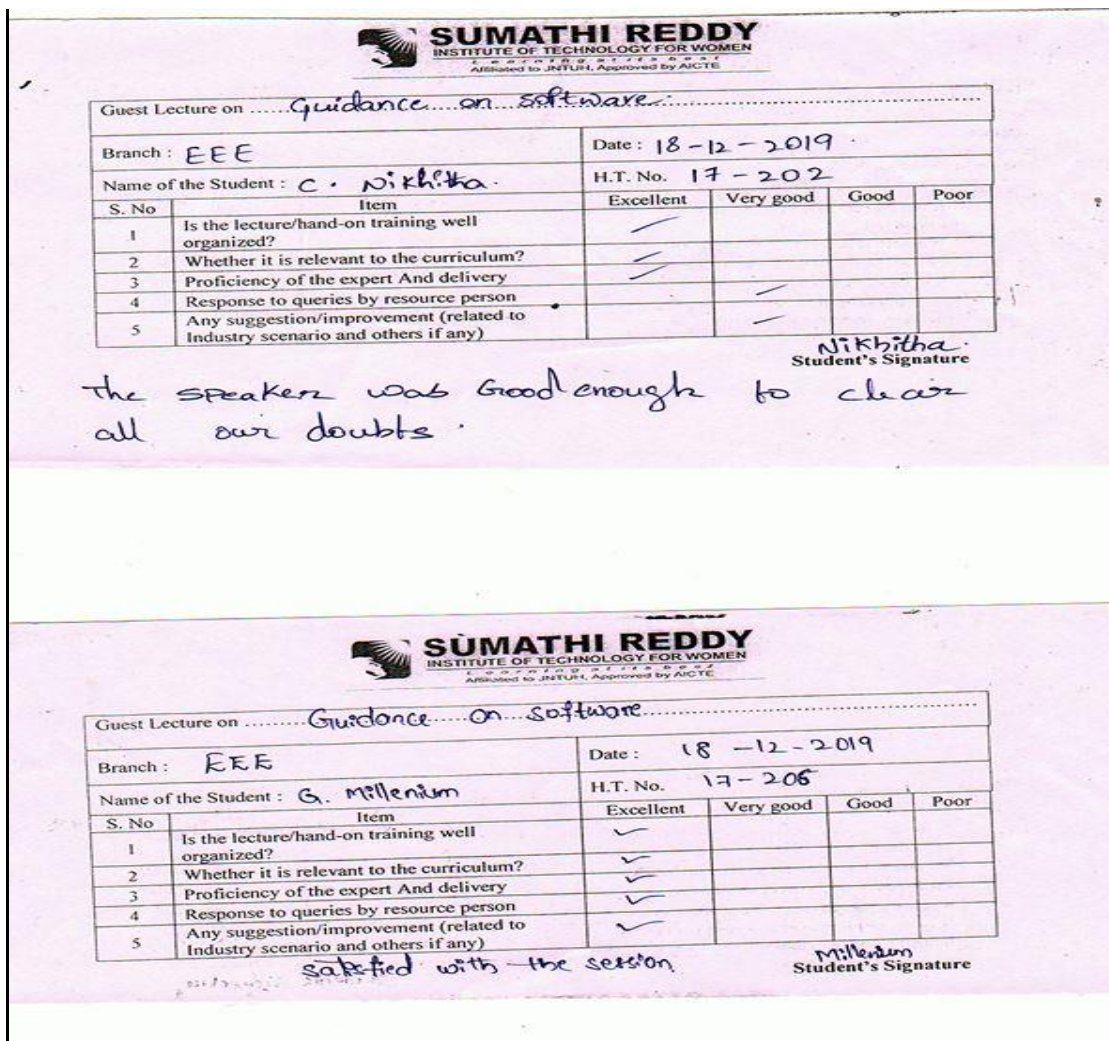 SUMATHI REDDY
INSTITUTE OF TECHNOLOGY FOR WOMEN
Learning at its best
Affiliated to JNTUH, Approved by AICTE
Guest Lecture on ...... Guidance on software
Branch : EEE Date : 18-12-2019
Name of the Student : C. Nikhitha. H.T. No. 17-202
S. No Item Excellent Very good Good Poor
1 Is the lecture/hand-on training well
organized?
2 Whether it is relevant to the curriculum?
3 Proficiency of the expert And delivery
4 Response to queries by resource person
5 Any suggestion/improvement (related to
Industry scenario and others if any)
Nikhitha.
Student's Signature
The speaker was Good enough to clear
all our doubts.
SUMATHI REDDY
INSTITUTE OF TECHNOLOGY FOR WOMEN
Learning at its best
Affiliated to JNTUH, Approved by AICTE
Guest Lecture on ......... Guidance on software
Branch : EEE Date : 18-12-2019
Name of the Student : G. Millenium H.T. No. 17-206
S. No Item Excellent Very good Good Poor
1 Is the lecture/hand-on training well
organized?
2 Whether it is relevant to the curriculum?
3 Proficiency of the expert And delivery
4 Response to queries by resource person
5 Any suggestion/improvement (related to
Industry scenario and others if any)
satisfied with the session
Millenium
Student's Signature